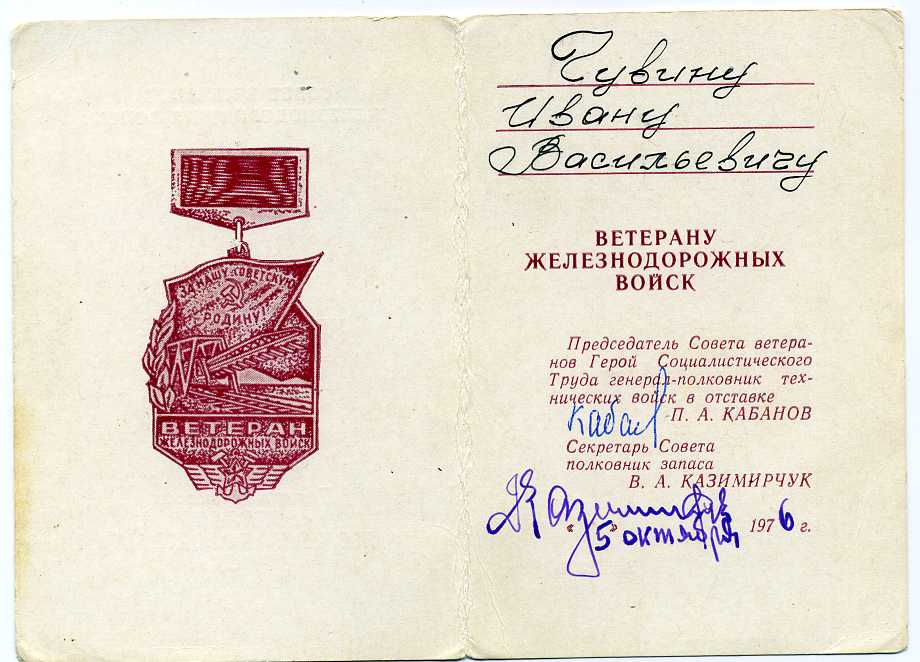 ЗА НАШУ СОВЕТСКУЮ
РОДИНУ!
ВЕТЕРАН
ЖЕЛЕЗНОДОРОЖНЫХ ВОЙСК
Чувину
Ивану
Васильевичу
ВЕТЕРАНУ
ЖЕЛЕЗНОДОРОЖНЫХ
ВОЙСК
Председатель Совета ветера-
нов Герой Социалистического
Труда генерал-полковник тех-
нических войск в отставке
П. А. КАБАНОВ
Секретарь Совета
полковник запаса
В. А. КАЗИМИРЧУК
«5» октября 1976 г.